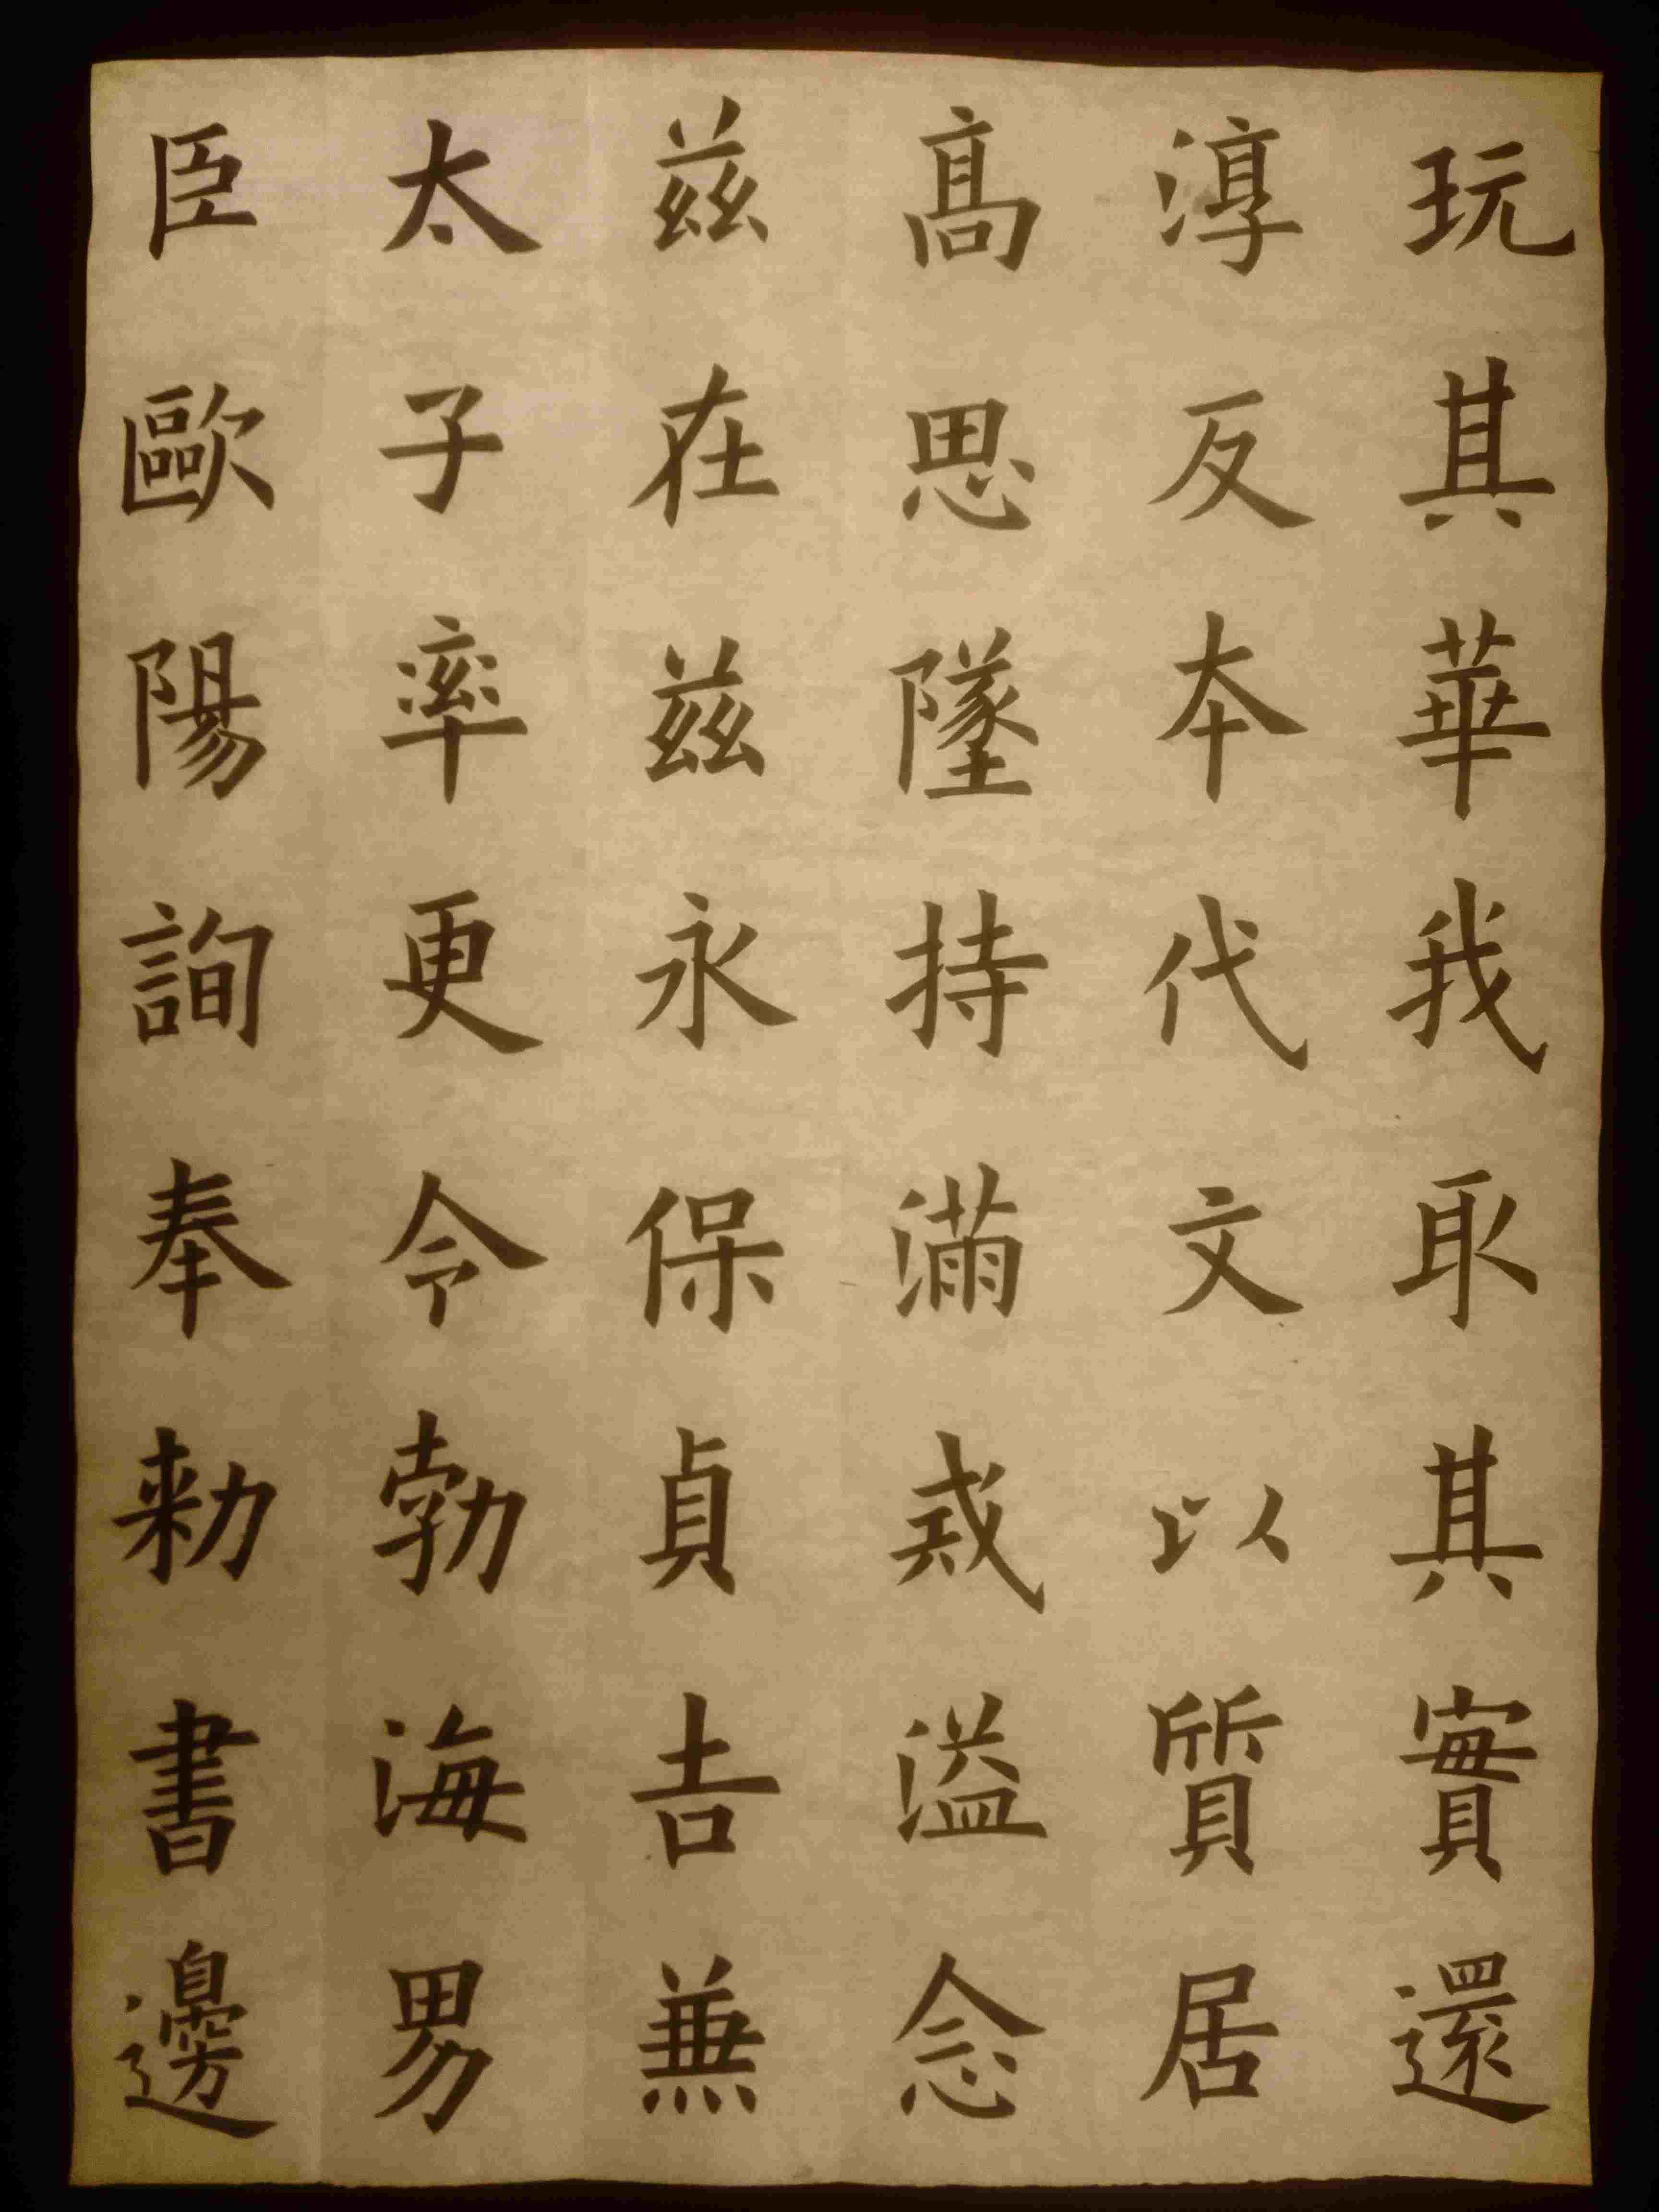 玩其華我取其實還
淳反本代文以質居
高思墜持滿戒溢念
茲在茲永保貞吉兼
太子率更令勃海男
臣歐陽詢奉勑書邊